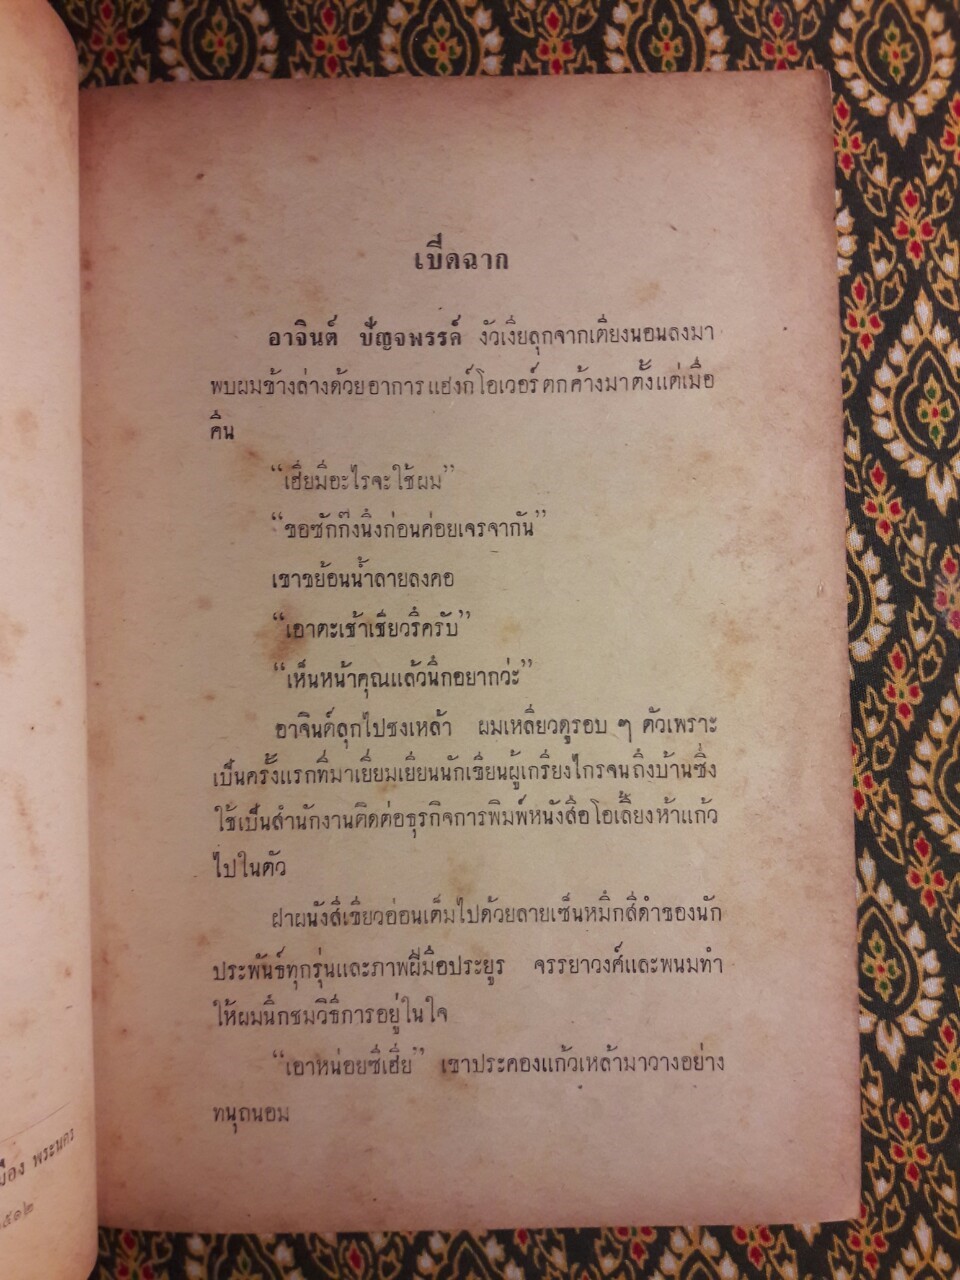 เปิดฉาก
อาจินต์ ปัญจพรรค์ งัวเงียลุกจากเตียงนอนลงมา
พบผมข้างล่างด้วยอาการแฮงก์โอเวอร์ตกค้างมาตั้งแต่เมื่อ
คืน
“เฮียมีอะไรจะใช้ผม”
“ขอซักกึ๊งนึงก่อนค่อยเจรจากัน”
เขาขย้อนน้ำลายลงคอ
“เอาตะเช้าเชียวรึครับ”
“เห็นหน้าคุณแล้วนึกอยากว่ะ”
อาจินต์ลุกไปชงเหล้า ผมเหลียวดูรอบ ๆ ตัวเพราะ
เป็นครั้งแรกที่มาเยี่ยมเยียนนักเขียนผู้เกรียงไกรจนถึงบ้านซึ่ง
ใช้เป็นสำนักงานติดต่อธุรกิจการพิมพ์หนังสือโอเลี้ยงห้าแก้ว
ไปในตัว
ฝาผนังสีเขียวอ่อนเต็มไปด้วยลายเซ็นหมึกสีดำของนัก
ประพันธ์ทุกรุ่นและภาพฝีมือประยูร จรรยาวงศ์และพนมทำ
ให้ผมนึกชมวิธีการอยู่ในใจ
“เอาหน่อยซีเฮีย” เขาประคองแก้วเหล้ามาวางอย่าง
ทนุถนอม
มือง พระนคร
๕๑๒